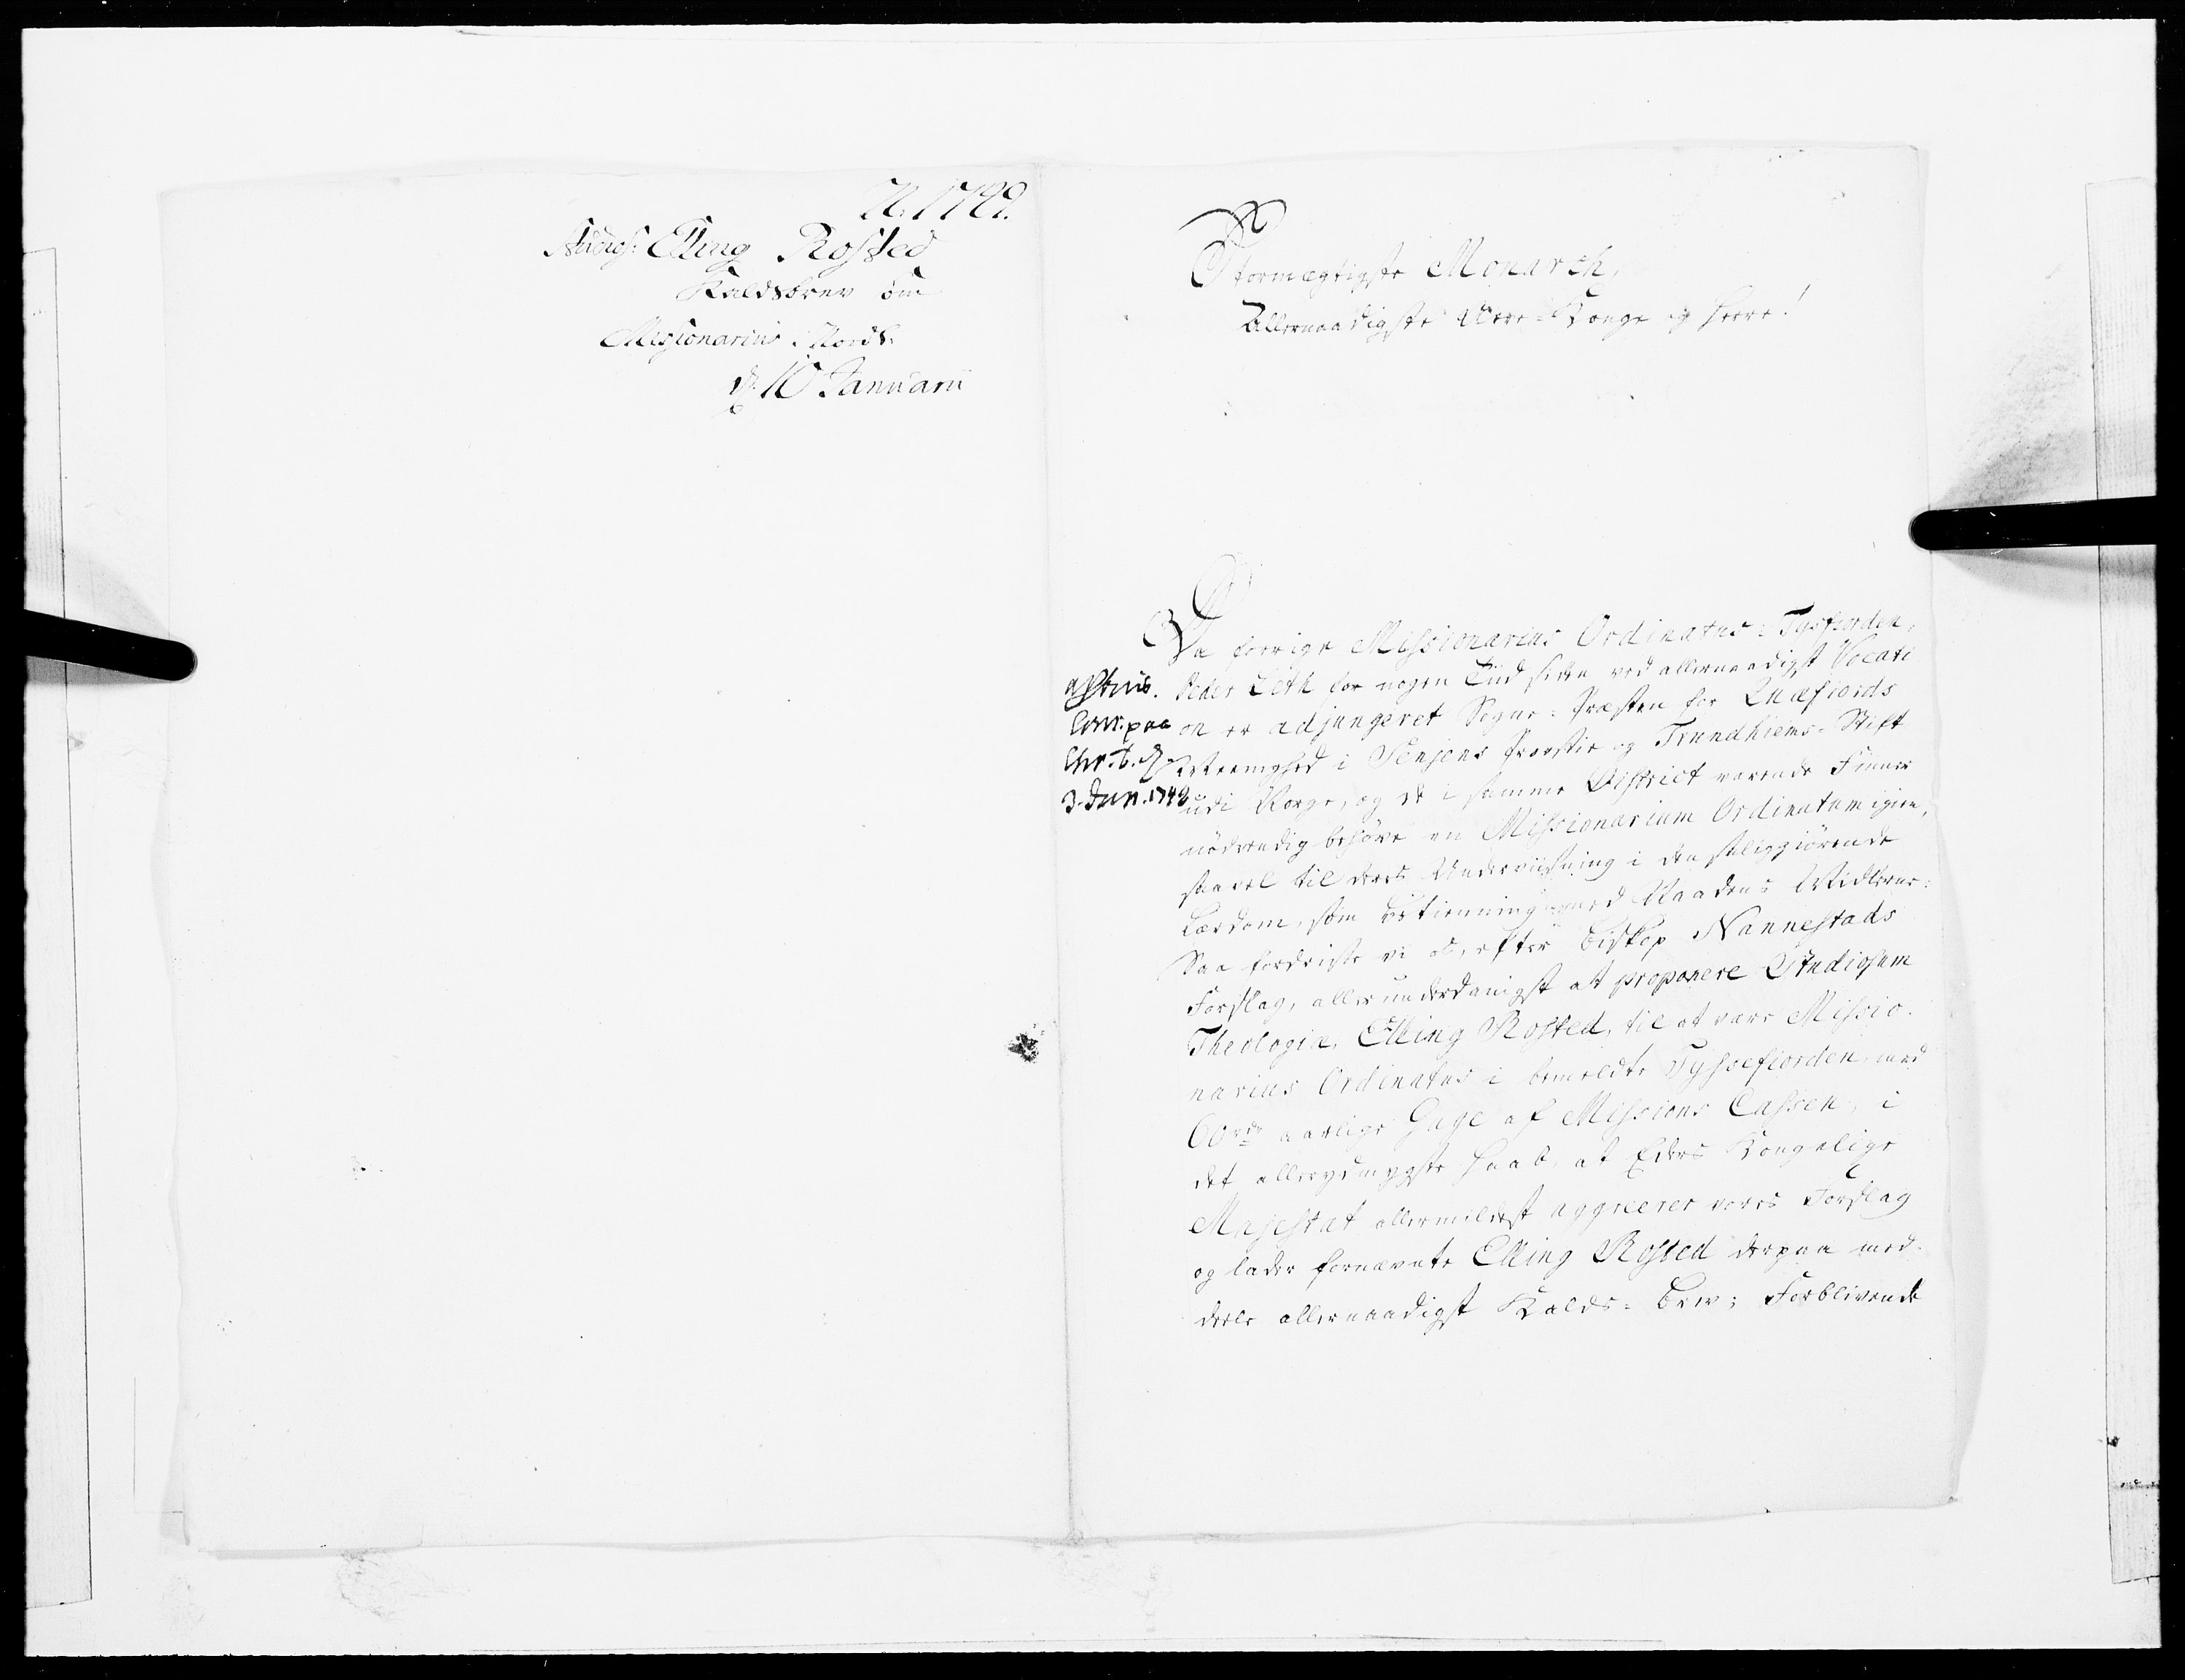 N. 1749.
Studios: Elling Rosted
Kaldsbrev om
Missionarius i Nordl:
d. 10 Januarii
Stormægtigste Monarch,
Allernaadigste Arve-Konge og Herre!
Da forrige Missionarius Ordinatus i Tysfiorden,
Peder Leth for nogen Tiid siden ved allernaadigst Vocati
on er adjungeret Sogne-Præsten for Quæfiords
Meenighed i Senjens Provstie og Trundhiems-Stift
udi Norge, og de i samme District værende Finner
nødvendig behøve en Missionarium Ordinatum igien,
saavel til deres Underviisning i den saliggiørende
Lærdom, som Betiening med Naadens Midler:
Saa fordriste vi os, efter Biskop Nannestads
Forslag, allerunderdanigst at proponere Studiosum
Theologiæ, Elling Rosted, til at være Missio-
narius Ordinatus i bemeldte Tyssefiorden, med
60 rdr aarlige Gage af Missions Cassen, i
det allerydmygste Haab, at Eders Kongelige
Majestæt allermildest aggreerer vores Forslag
og lader fornævnte Elling Rosted derpaa med-
deele allernaadigst Kalds-Brev; Forblivende
paa
Chr.b. d.
3. Jan. 1749